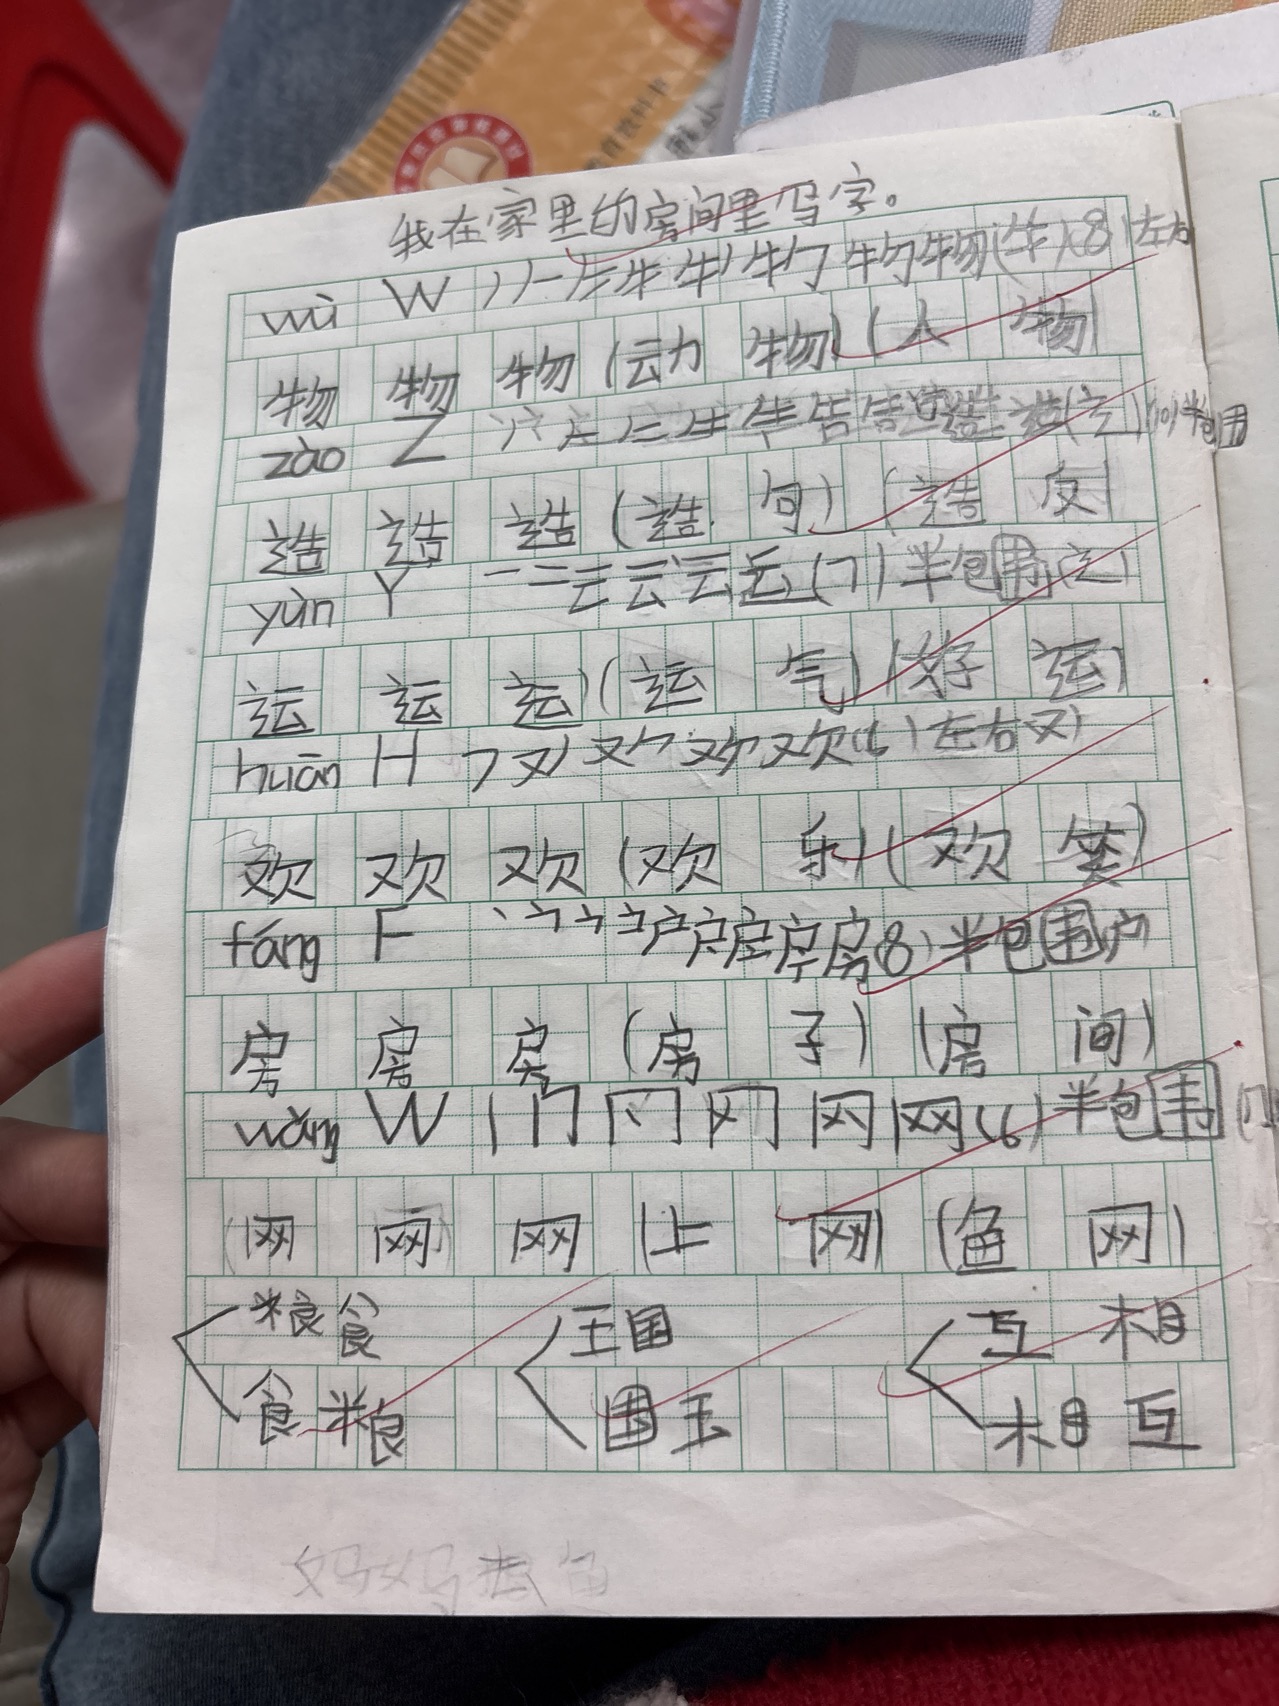 我在家里的房间里写字。
wù W 丿 𠂉 牛 牜 牜 牞 物 物 (牜) (8) 左右
物 物 物 (动 物) (人 物)
zào Z 告 告 造 造 (辶) (10) 半包围
造 造 造 (造 句) (造 反)
yùn Y 一 二 云 云 运 (7) 半包围 (辶)
运 运 运 (运 气) (好 运)
huān H 又 欢 欢 (6) 左右 又
欢 欢 欢 (欢 乐) (欢 笑)
fáng F 丶 户 房 房 (8) 半包围 户
房 房 房 (房 子) (房 间)
wǎng W 丨 冂 网 网 (6) 半包围
网 网 网 (上 网) (鱼 网)
粮食 王国 互相
食粮 国王 相互
妈妈